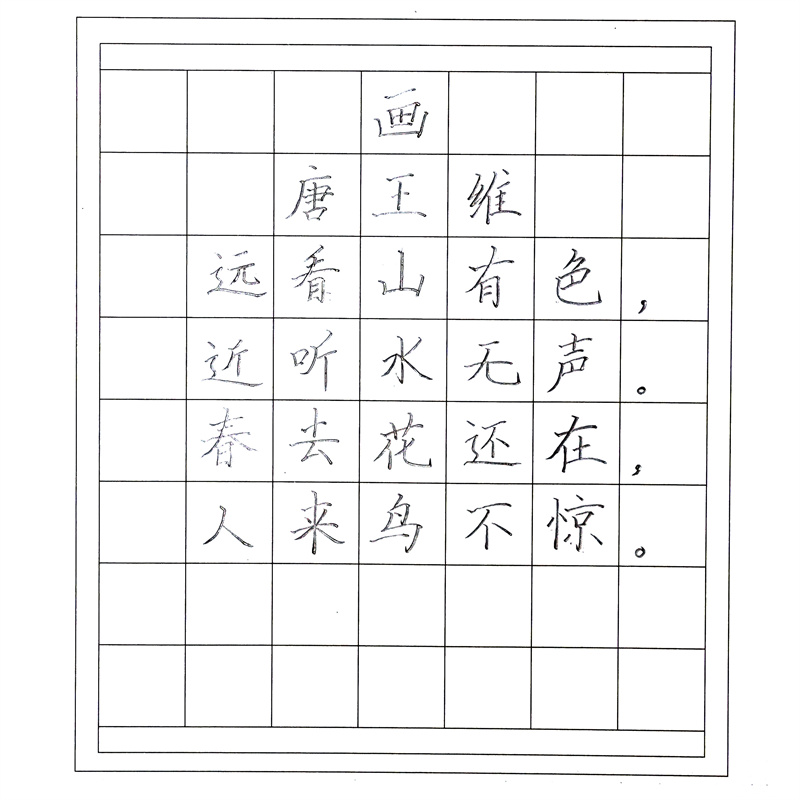 画
唐王维
远看山有色，
近听水无声。
春去花还在，
人来鸟不惊。